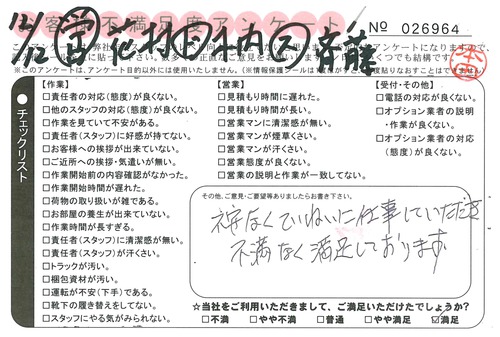 お客様不満足度アンケート
No 026964
【作業】
□責任者の対応(態度)が良くない。
□他のスタッフの対応(態度)が良くない。
□作業を見ていて不安がある。
□責任者(スタッフ)に好感が持てない。
□お客様への挨拶が出来ていない。
□ご近所への挨拶・気遣いが無い。
□作業開始前の内容確認がなかった。
□作業開始時間が遅れた。
□荷物の取り扱いが雑である。
□お部屋の養生が出来ていない。
□作業時間が長すぎる。
□責任者(スタッフ)に清潔感が無い。
□責任者(スタッフ)が汗くさい。
□トラックが汚い。
□梱包資材が汚い。
□運転が不安(下手)である。
□靴下の履き替えをしてない。
□スタッフにやる気がみられない。
【営業】
□見積もり時間に遅れた。
□見積もり時間が長い。
□営業マンに清潔感が無い。
□営業マンが煙草くさい。
□営業マンが汗くさい。
□営業態度が良くない。
□営業の説明と作業が一致してない。
【受付・その他】
□電話の対応が良くない。
□オプション業者の説明
・作業が良くない。
□オプション業者の対応
(態度)が良くない。
チェックリスト
その他、ご意見・ご要望等ありましたらお書き下さい。
ていねいに仕事していただき
不満なく満足しております
☆当社をご利用いただきまして、ご満足いただけたでしょうか?
□不満 □やや不満 □普通 □やや満足 ☑満足